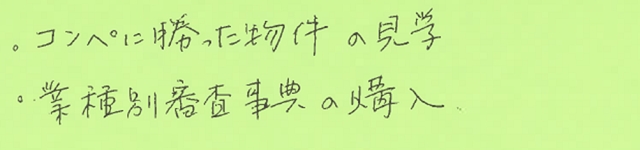 。コンペに勝った物件の見学
・業種別審査事典の購入